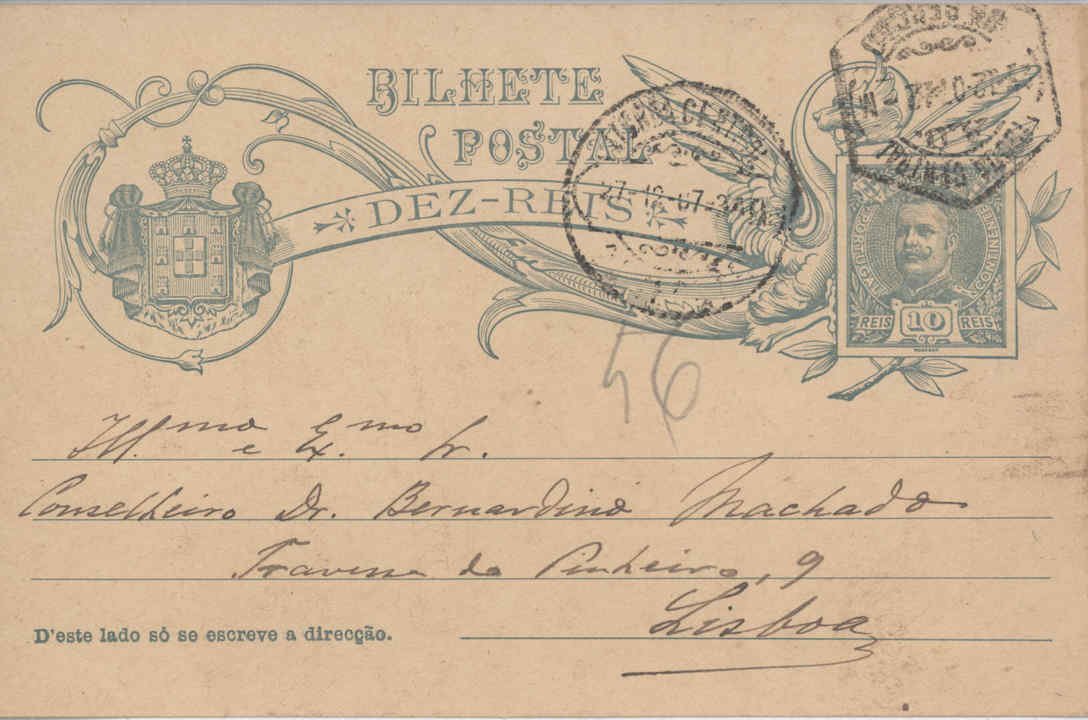 BILHETE
POSTAL
DEZ-REIS
LISBOA CENTRAL
27-12-07
PORTUGAL
CONTINENTE
REIS 10 REIS
56
Ill.mo e Ex.mo Sr.
Conselheiro Dr. Bernardino Machado
Travessa do Pinheiro, 9
Lisboa
D'este lado só se escreve a direcção.